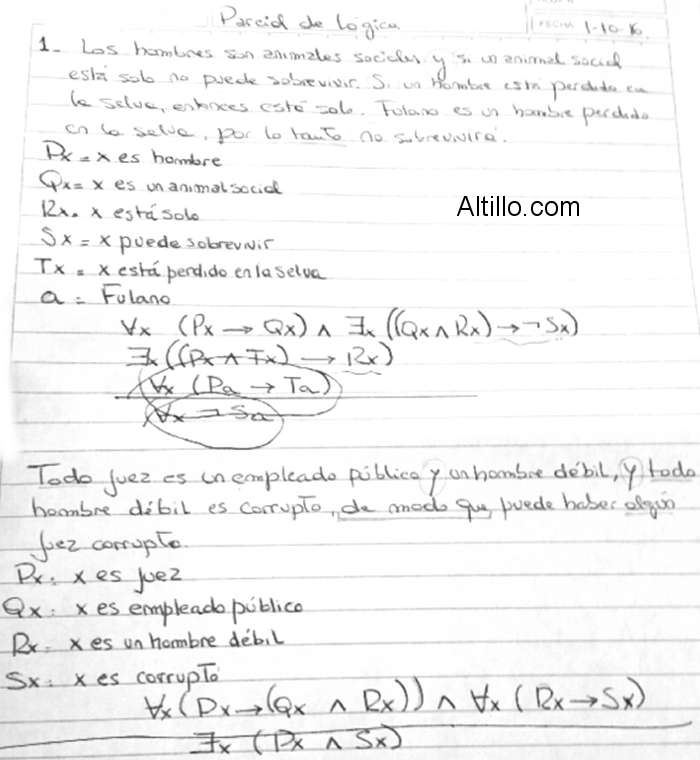 Parcial de Lógica
FECHA 1-10-16
1- Los hombres son animales sociales y si un animal social
está solo no puede sobrevivir. Si un hombre está perdido en
la selva, entonces está solo. Fulano es un hombre perdido
en la selva, por lo tanto no sobrevivirá.
Px = x es hombre
Qx = x es un animal social
Rx = x está solo
Altillo.com
Sx = x puede sobrevivir
Tx = x está perdido en la selva
a = Fulano
∀x (Px → Qx) ∧ ∃x ((Qx ∧ Rx) → ¬Sx)
∃x ((Px ∧ Tx) → Rx)
∀x (Pa → Ta)
∀x ¬ Sa
Todo juez es un empleado público y un hombre débil, y todo
hombre débil es corrupto, de modo que puede haber algún
juez corrupto.
Px: x es juez
Qx: x es empleado público
Rx: x es un hombre débil
Sx: x es corrupto
∀x (Px → (Qx ∧ Rx)) ∧ ∀x (Rx → Sx)
∃x (Px ∧ Sx)